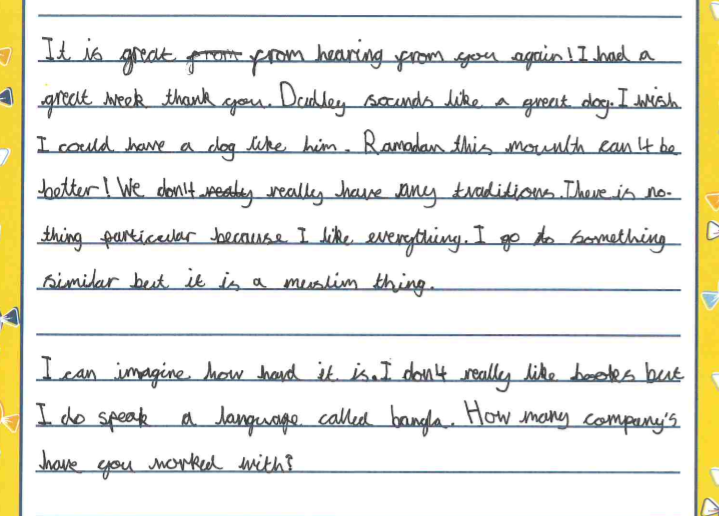 It is great from from hearing from you again! I had a
great week thank you. Dudley sounds like a great dog. I wish
I could have a dog like him. Ramadan this mounth can't be
better! We don't really really have any traditions. There is no-
thing particular because I like everything. I go to something
similar but it is a muslim thing.
I can imagine how hard it is. I don't really like books but
I do speak a language called bangla. How many company's
have you worked with?